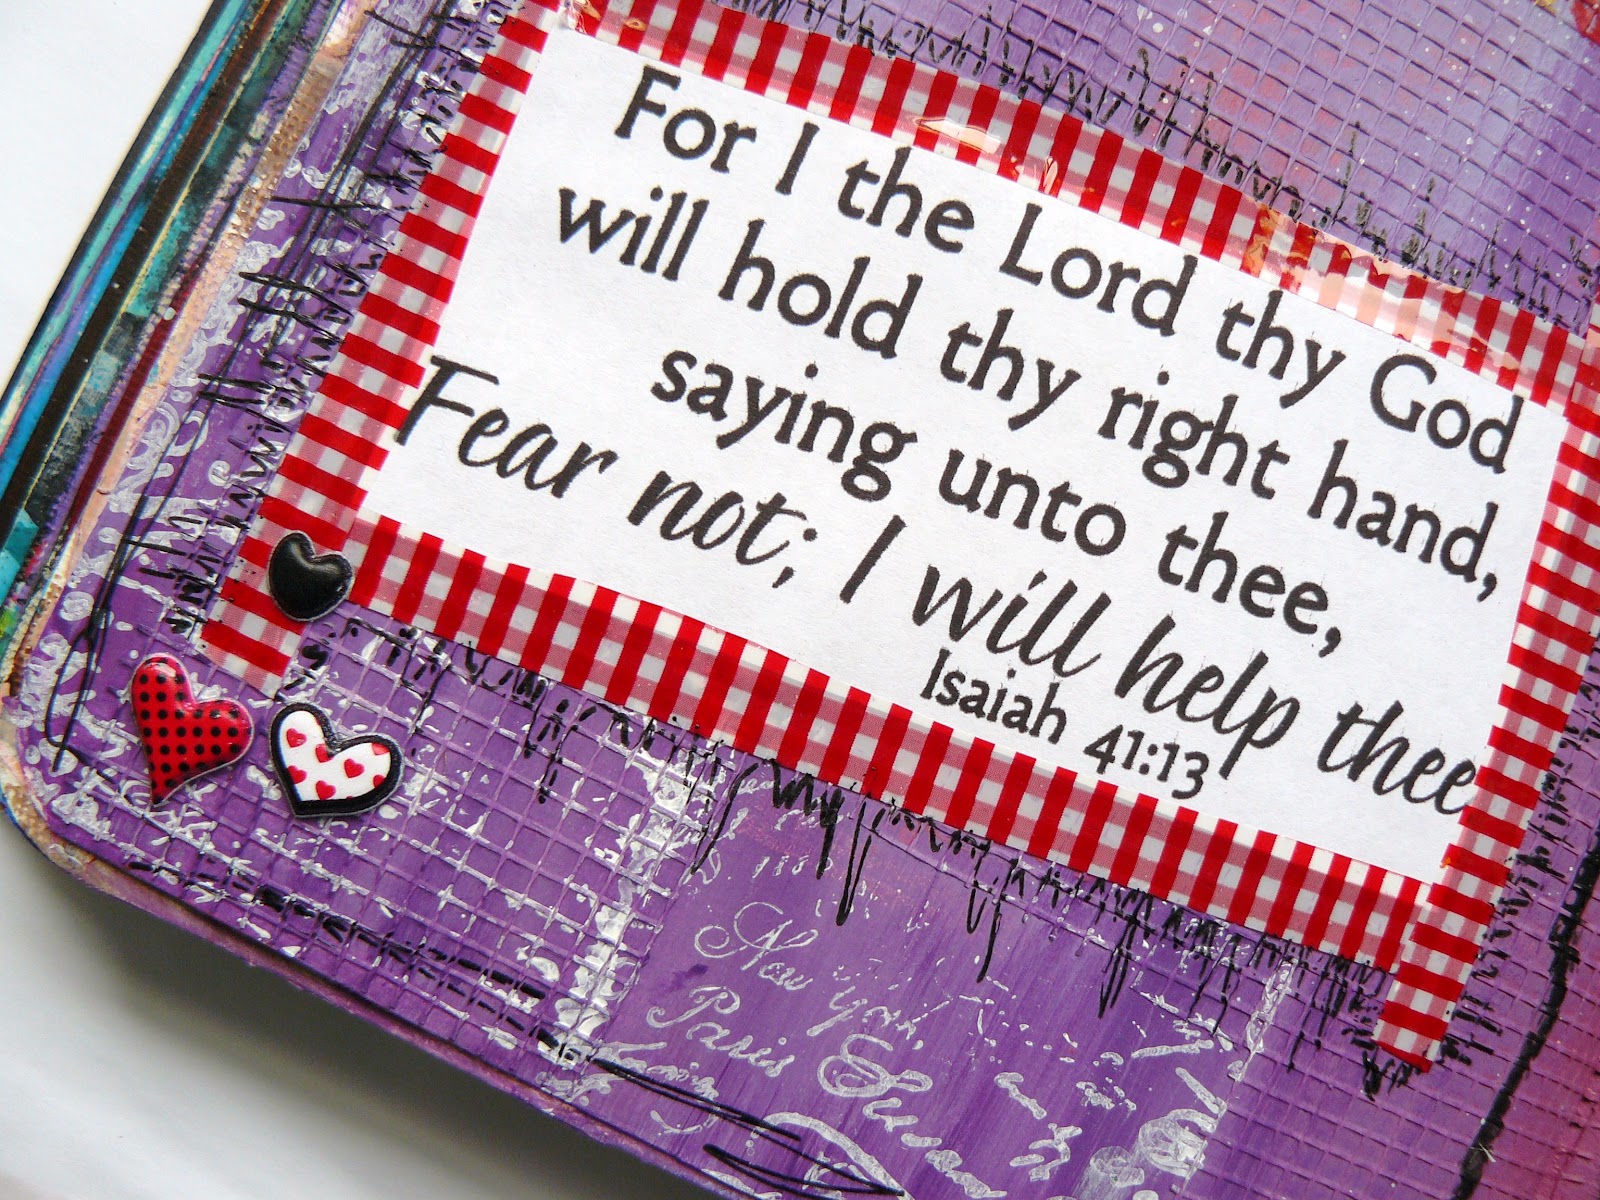 For I the Lord thy God
will hold thy right hand,
saying unto thee,
Fear not; I will help thee
Isaiah 41:13
New York
Paris